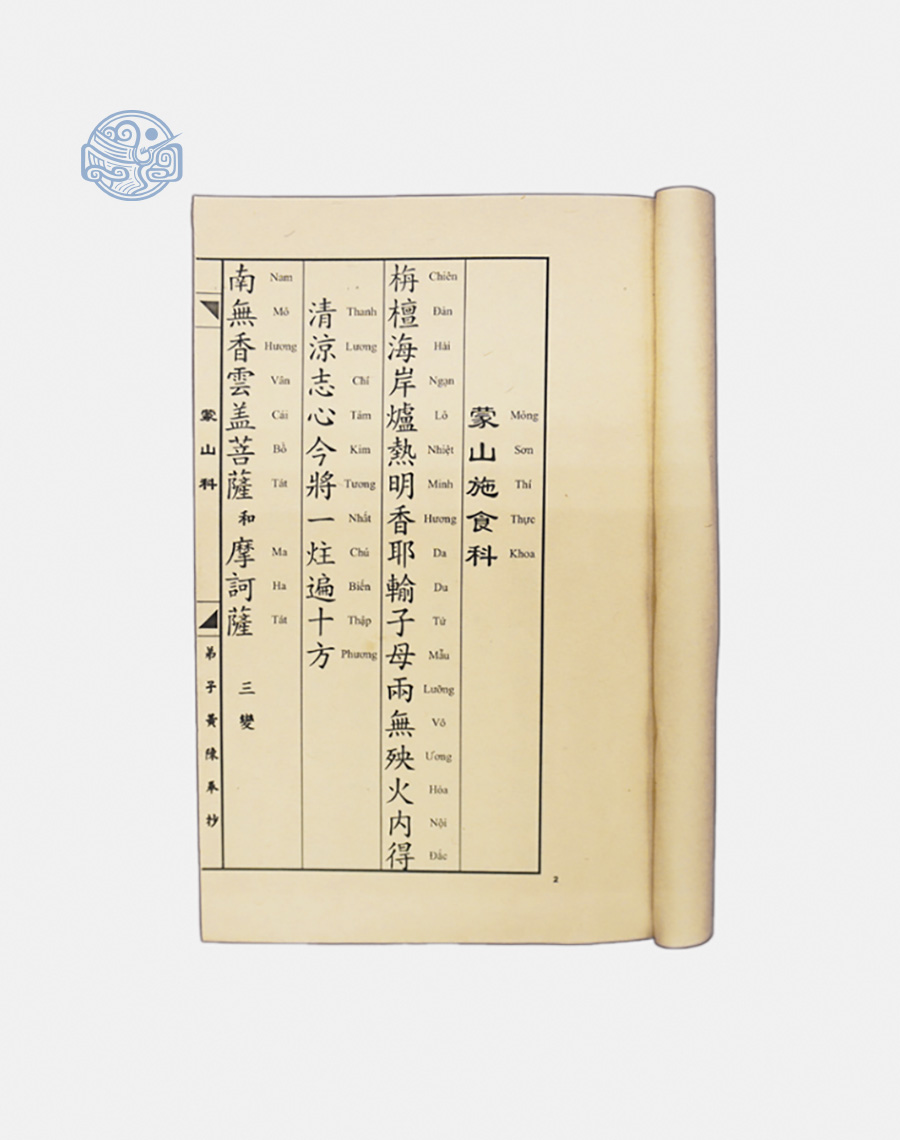 蒙山施食科
Mông Sơn Thí Thực Khoa
栴檀海岸爐熱明香耶輸子母兩無殃火内得
Chiên Đàn Hải Ngạn Lô Nhiệt Minh Hương Da Du Tử Mẫu Lưỡng Vô Ương Hỏa Nội Đắc
清涼志心今將一炷遍十方
Thanh Lương Chí Tâm Kim Tương Nhất Chú Biến Thập Phương
南無香雲盖菩薩和摩訶薩 三變
Nam Mô Hương Vân Cái Bồ Tát Ma Ha Tát
蒙山科
弟子黃陳奉抄
2